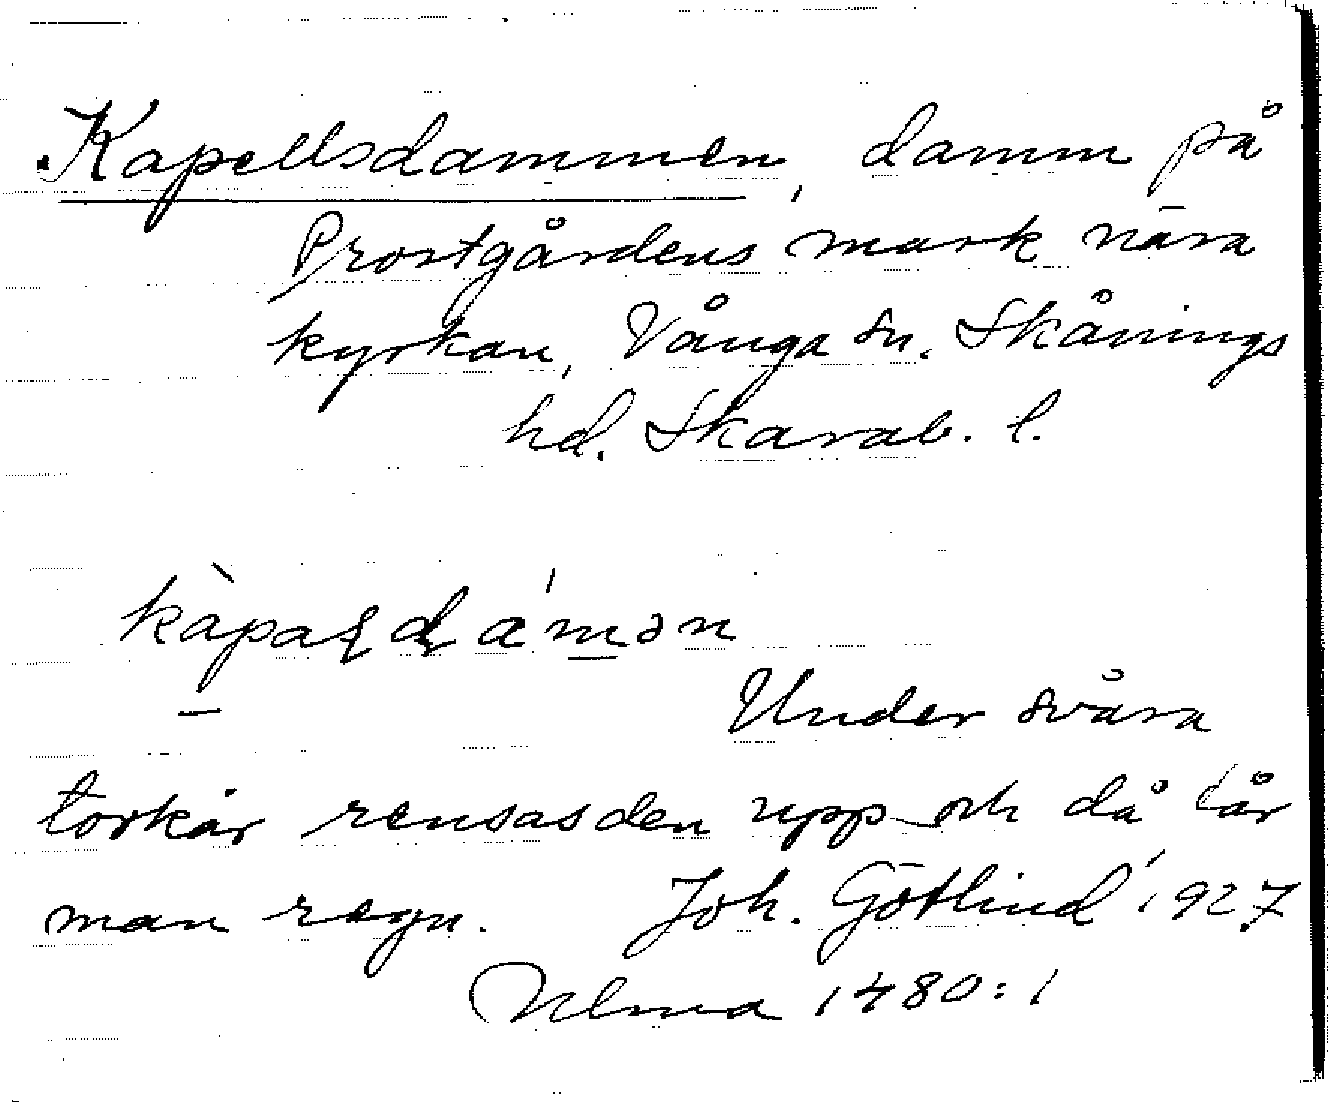 Kapellsdammen, damm på
Prostgårdens mark nära
kyrkan, Vånga sn. Skånings
hd. Skarab. l.
Under svåra
torkår rensas den upp och då får
man regn. Joh. Götlind 1927
Ulma 1480:1